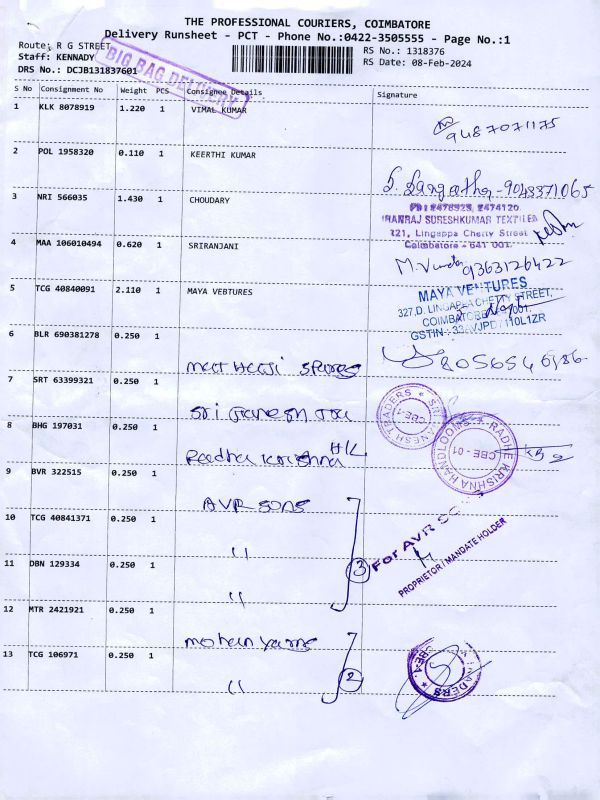 THE PROFESSIONAL COURIERS, COIMBATORE
Delivery Runsheet - PCT - Phone No.:0422-3505555 - Page No.:1
Route: R G STREET
Staff: KENNADY
DRS No.: DCJB131837601
BIG BAG DELIVERY
RS No.: 1318376
RS Date: 08-Feb-2024
S No Consignment No Weight PCS Consignee Details Signature
1 KLK 8078919 1.220 1 VIMAL KUMAR
9487071175
2 POL 1958320 0.110 1 KEERTHI KUMAR
9043371065
3 NRI 566035 1.430 1 CHOUDARY
PH : 2478523, 2474120
IRANRAJ SURESHKUMAR TEXTILES
121, Lingappa Chetty Street
Coimbatore - 641 001.
4 MAA 106010494 0.620 1 SRIRANJANI
9363126422
5 TCG 40840091 2.110 1 MAYA VEBTURES
MAYA VENTURES
327,D, LINGAPPA CHETTY STREET,
COIMBATORE
GSTIN
6 BLR 690381278 0.250 1
spares
8056546186.
7 SRT 63399321 0.250 1
Sri Ganesh Tra
SRI GANESH TRADERS
CBE-1
8 BHG 197031 0.250 1
Radha Krishna H/L
RADHE KRISHNA HANDLOOMS
CBE - 01
9 BVR 322515 0.250 1
AVR SONS
10 TCG 40841371 0.250 1
"
For AVR
PROPRIETOR / MANDATE HOLDER
11 DBN 129334 0.250 1
"
3
12 MTR 2421921 0.250 1
mohan yarns
13 TCG 106971 0.250 1
"
2